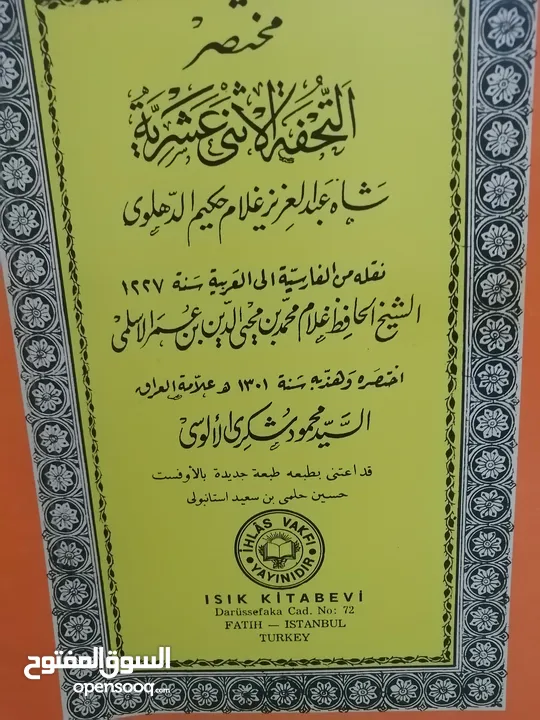 مختصر
التحفة الاثنى عشرية
شاه عبد العزيز غلام حكيم الدهلوى
نقله من الفارسية الى العربية سنة ١٢٢٧
الشيخ الحافظ غلام محمد بن محيى الدين بن عمر الاسلمى
اختصره وهذبه سنة ١٣٠١ هـ علامة العراق
السيد محمود شكرى الألوسى
قد اعتنى بطبعه طبعة جديدة بالأوفست
حسين حلمى بن سعيد استانبولى
İHLÂS VAKFI
YAYINIDIR
ISIK KİTABEVİ
Darüssefaka Cad. No: 72
FATIH — ISTANBUL
TURKEY
السوق المفتوح
opensooq.com